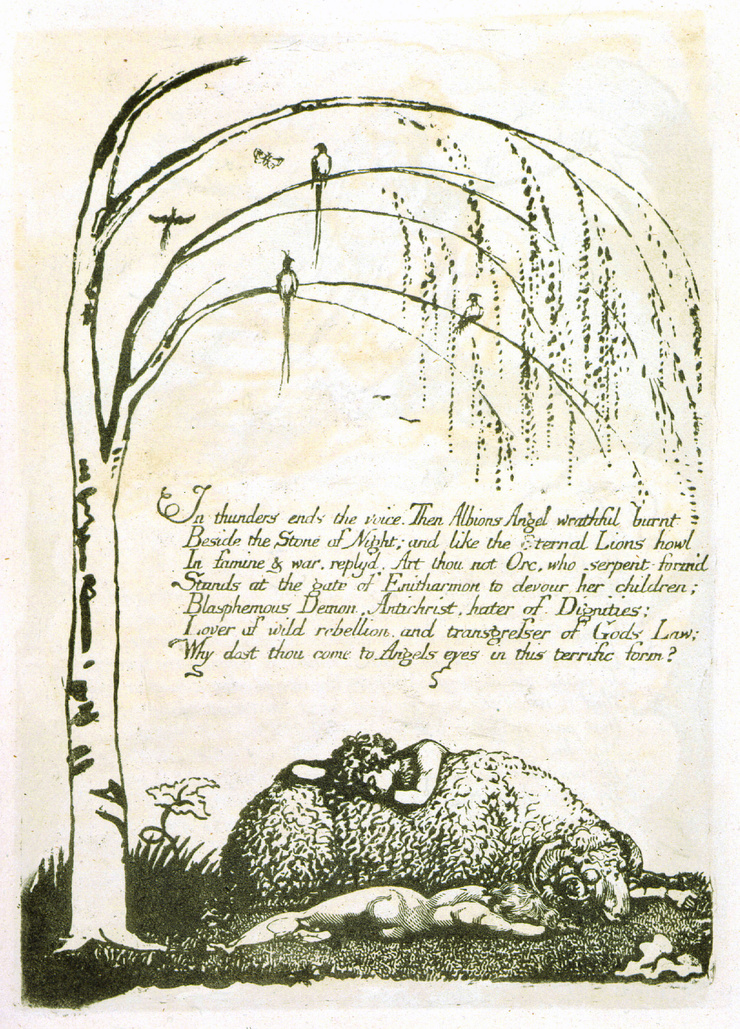 In thunders ends the voice. Then Albions Angel wrathful burnt
Beside the Stone of Night; and like the Eternal Lions howl
In famine & war, reply'd. Art thou not Orc, who serpent-form'd
Stands at the gate of Enitharmon to devour her children;
Blasphemous Demon, Antichrist, hater of Dignities;
Lover of wild rebellion, and transgresser of Gods Law;
Why dost thou come to Angels eyes in this terrific form?